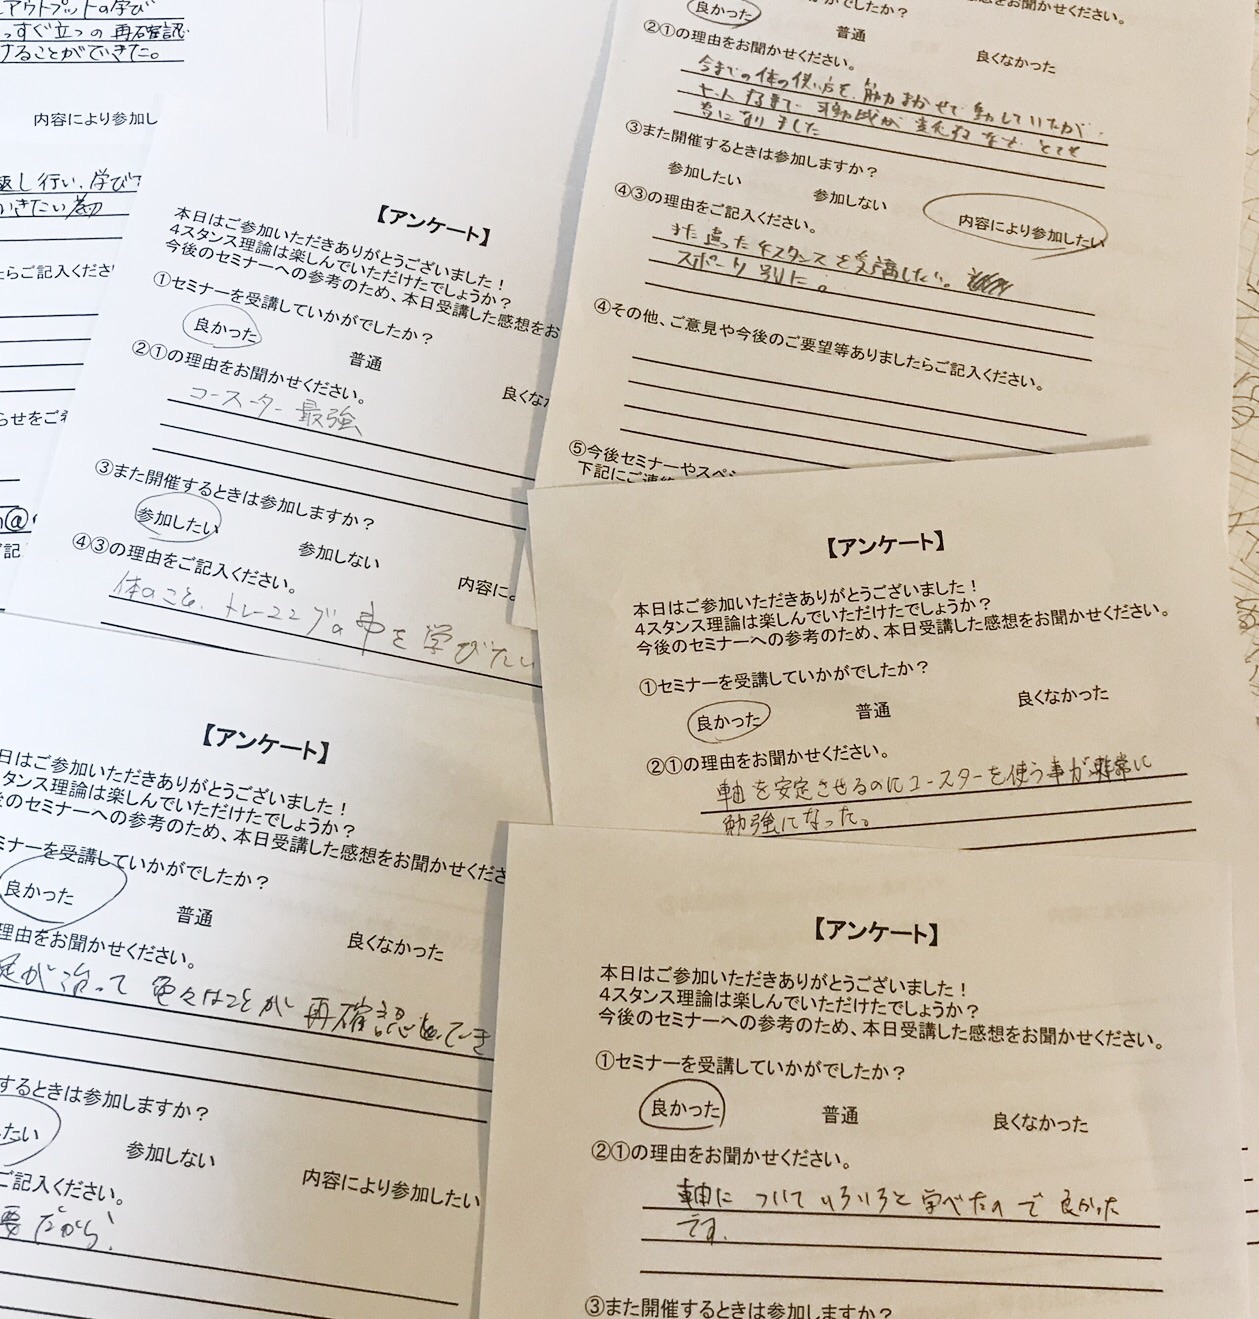 アウトプットの学び
っすぐ立つの再確認
けることができた。
内容により参加し
返し行い、学びて
いきたい為
たらご記入くださ
らせをご
@
記
【アンケート】
本日はご参加いただきありがとうございました！
4スタンス理論は楽しんでいただけたでしょうか？
今後のセミナーへの参考のため、本日受講した感想をお
①セミナーを受講していかがでしたか？
良かった 普通 良くな
②①の理由をお聞かせください。
コースター最強
③また開催するときは参加しますか？
参加したい 参加しない 内容に
④③の理由をご記入ください。
体のこと、トレーニングの事を学びたい
をお聞かせください。
でしたか？
良かった 普通 良くなかった
②①の理由をお聞かせください。
今までの体の使い方を、筋力まかせで動かしていたが、
可動域が変化するなど、とても
になりました
③また開催するときは参加しますか？
参加したい 参加しない 内容により参加したい
④③の理由をご記入ください。
また違った4スタンスを受講したい。
スポーツ別に。
④その他、ご意見や今後のご要望等ありましたらご記入ください。
⑤今後セミナーやスペシ
下記にご連絡
【アンケート】
本日はご参加いただきありがとうございました！
4スタンス理論は楽しんでいただけたでしょうか？
今後のセミナーへの参考のため、本日受講した感想をお聞かせください。
①セミナーを受講していかがでしたか？
良かった 普通 良くなかった
②①の理由をお聞かせください。
軸を安定させるのにコースターを使う事が非常に
勉強になった。
【アンケート】
日はご参加いただきありがとうございました！
スタンス理論は楽しんでいただけたでしょうか？
後のセミナーへの参考のため、本日受講した感想をお聞かせくださ
ミナーを受講していかがでしたか？
良かった 普通 良くなかった
理由をお聞かせください。
が治って 色々なことが再確認できてき
するときは参加しますか？
したい 参加しない 内容により参加したい
ご記入ください。
要だから！
【アンケート】
本日はご参加いただきありがとうございました！
4スタンス理論は楽しんでいただけたでしょうか？
今後のセミナーへの参考のため、本日受講した感想をお聞かせください。
①セミナーを受講していかがでしたか？
良かった 普通 良くなかった
②①の理由をお聞かせください。
軸についていろいろと学べたので良かった
です。
③また開催するときは参加しますか？